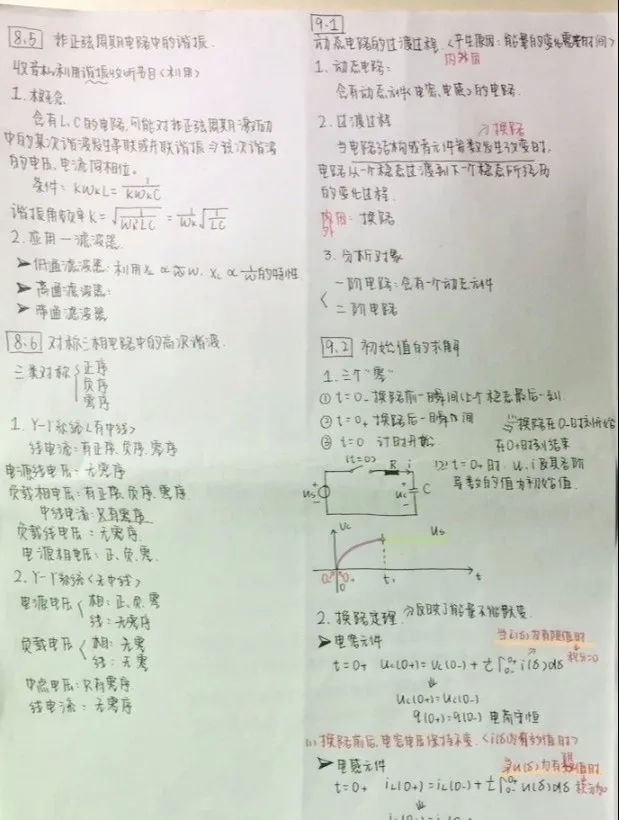 8.5 非正弦周期电路中的谐振.
收音机利用谐振收听节目(利用)
1. 概念
含有L、C的电路,可能对非正弦周期激励
中的某次谐波发生串联或并联谐振⇒该次谐波
的电压,电流同相位。
条件: KWkL = 1/KWkC
谐振角频率 K = √1/Wk²LC = 1/Wk √1/LC
2. 应用—滤波器
➤低通滤波器: 利用XL ∝ W. Xc ∝ 1/W的特性
➤高通滤波器:
➤带通滤波器
8.6 对称三相电路中的高次谐波.
三类对称 { 正序
负序
零序
1. Y-Y系统(有中线)
线电流: 有正序.负序.零序
电源线电压: 无零序
负载相电压: 有正序.负序.零序
中线电流: 只有零序
负载线电压: 无零序.
电源相电压: 正.负.零.
2. Y-Y系统<无中线>
电源电压 < 相: 正.负.零
线: 无零序
负载电压 < 相: 无零
线: 无零
中点电压: 只有零序
线电流: 无零序
9.1
动态电路的过渡过程.<产生原因: 能量的变化需要时间>
内因
1. 动态电路:
含有动态元件<电容、电感>的电路.
2. 过渡过程
⇒换路
当电路结构或者元件参数发生改变时,
电路从一个稳态过渡到下一个稳态所经历
的变化过程.
外因: 换路
3. 分析对象
< 一阶电路: 含有一个动态元件
二阶电路
9.2 初始值的求解
1. 三个“零”
① t=0- 换路前一瞬间 上个稳态最后一刻
② t=0+ 换路后一瞬间
⇒换路在0-时刻开始
③ t=0 计时开始
在0+时刻结束
(t=0) R i
Us Uc C
t=0+时. u、i及其各阶
导数的值为初始值.
Uc Us
0- 0+ 0 t1 t
2. 换路定理 ⇒反映了能量不能骤变
➤电容元件
当i(δ)为有限值时
积分=0
t=0+ Uc(0+)=Uc(0-)+ 1/C ∫0-0+ i(δ)dδ
⇓
Uc(0+)=Uc(0-)
q(0+)=q(0-) 电荷守恒
(1) 换路前后, 电容电压保持不变.<i(δ)为有限值时>
➤电感元件
当u(δ)为有限值时
积分为0
t=0+ iL(0+)=iL(0-)+ 1/L ∫0-0+ u(δ)dδ
⇓